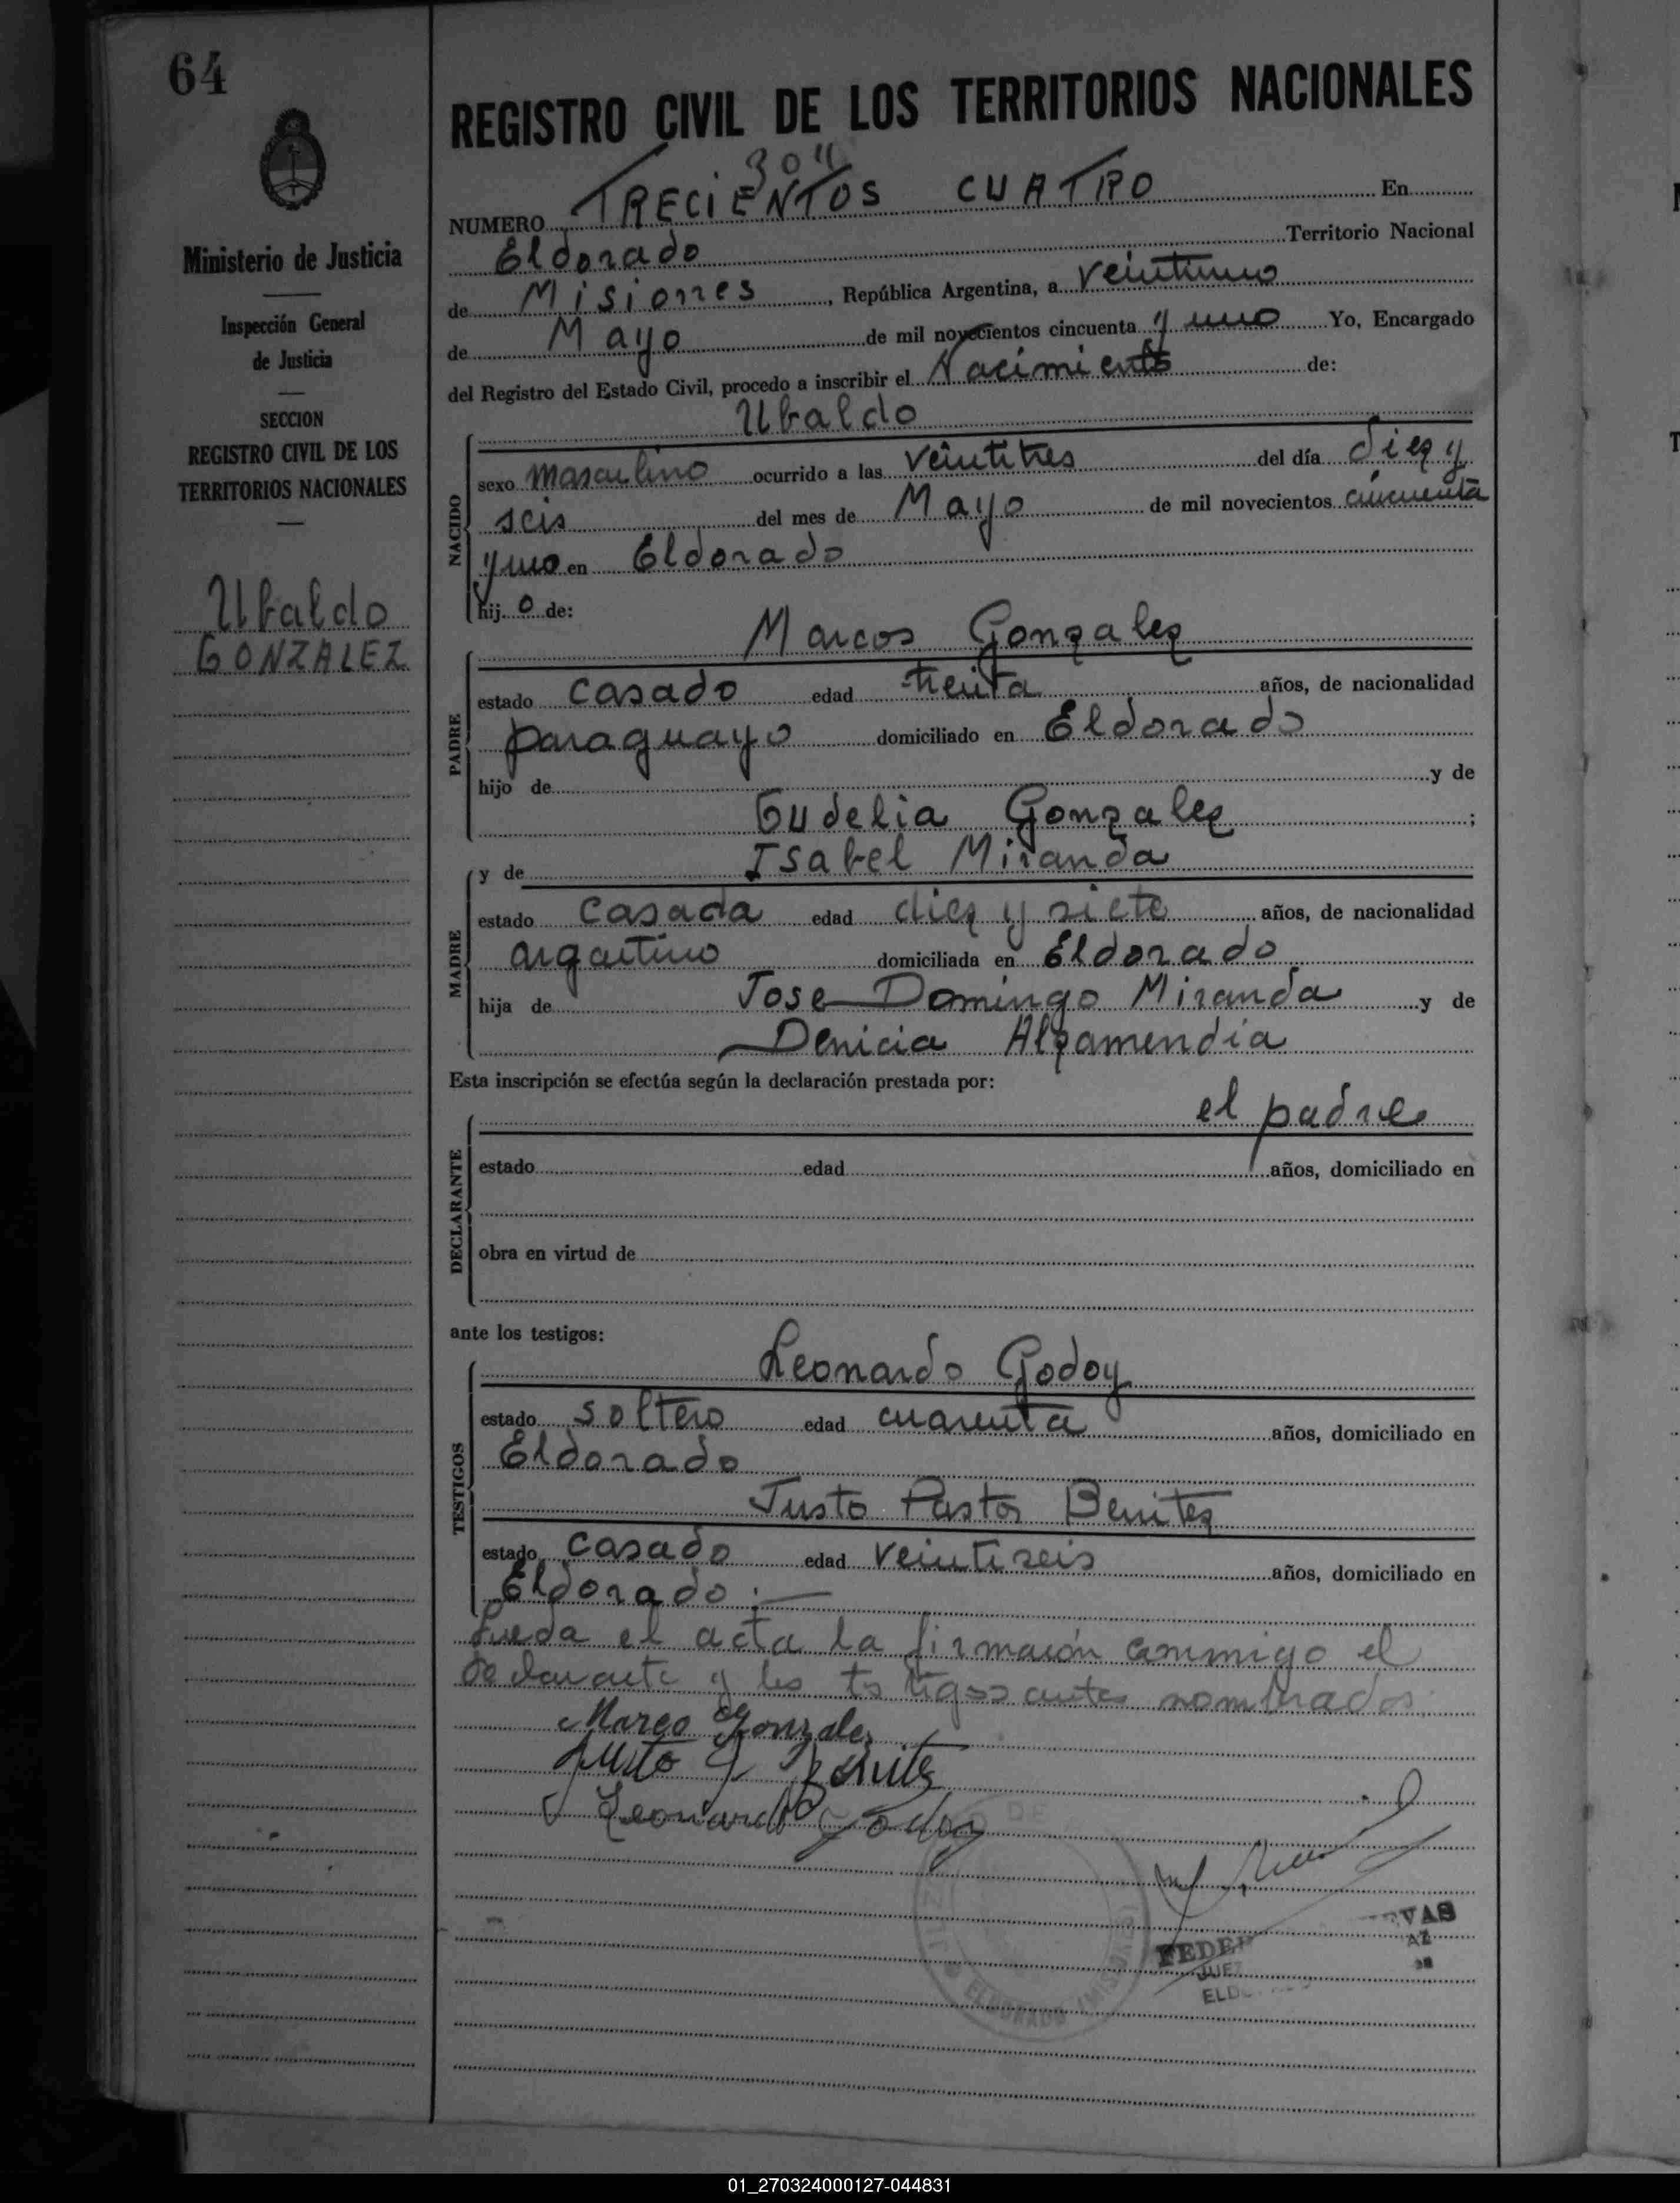 64
REGISTRO CIVIL DE LOS TERRITORIOS NACIONALES
304
NUMERO TRECIENTOS CUATRO En
Eldorado Territorio Nacional
de Misiones, República Argentina, a veintiuno
de Mayo de mil novecientos cincuenta y uno Yo, Encargado
del Registro del Estado Civil, procedo a inscribir el Nacimiento de:
Ministerio de Justicia
Inspección General
de Justicia
SECCION
REGISTRO CIVIL DE LOS
TERRITORIOS NACIONALES
Ubaldo
GONZALEZ
NACIDO
Ubaldo
sexo masculino ocurrido a las veintitres del día diez y
seis del mes de Mayo de mil novecientos cincuenta
y uno en Eldorado
hij o de:
PADRE
Marcos Gonzalez
estado casado edad treita años, de nacionalidad
paraguayo domiciliado en Eldorado
hijo de y de
Gudelia Gonzalez ;
MADRE
y de Isabel Miranda
estado casada edad diez y siete años, de nacionalidad
argentino domiciliada en Eldorado
hija de Jose Domingo Miranda y de
Denicia Alzamendia
Esta inscripción se efectúa según la declaración prestada por:
DECLARANTE
el padre
estado edad años, domiciliado en
obra en virtud de
ante los testigos:
TESTIGOS
Leonardo Godoy
estado soltero edad cuarenta años, domiciliado en
Eldorado
Justo Pastor Benitez
estado casado edad veintiseis años, domiciliado en
Eldorado.—
el acta la firmarón conmigo el
declarante y los testigos antes nombrados.
Marco Gonzalez
Justo P Benitez
Leonardo Godoy
ELDORADO
JUEZ
01_270324000127-044831